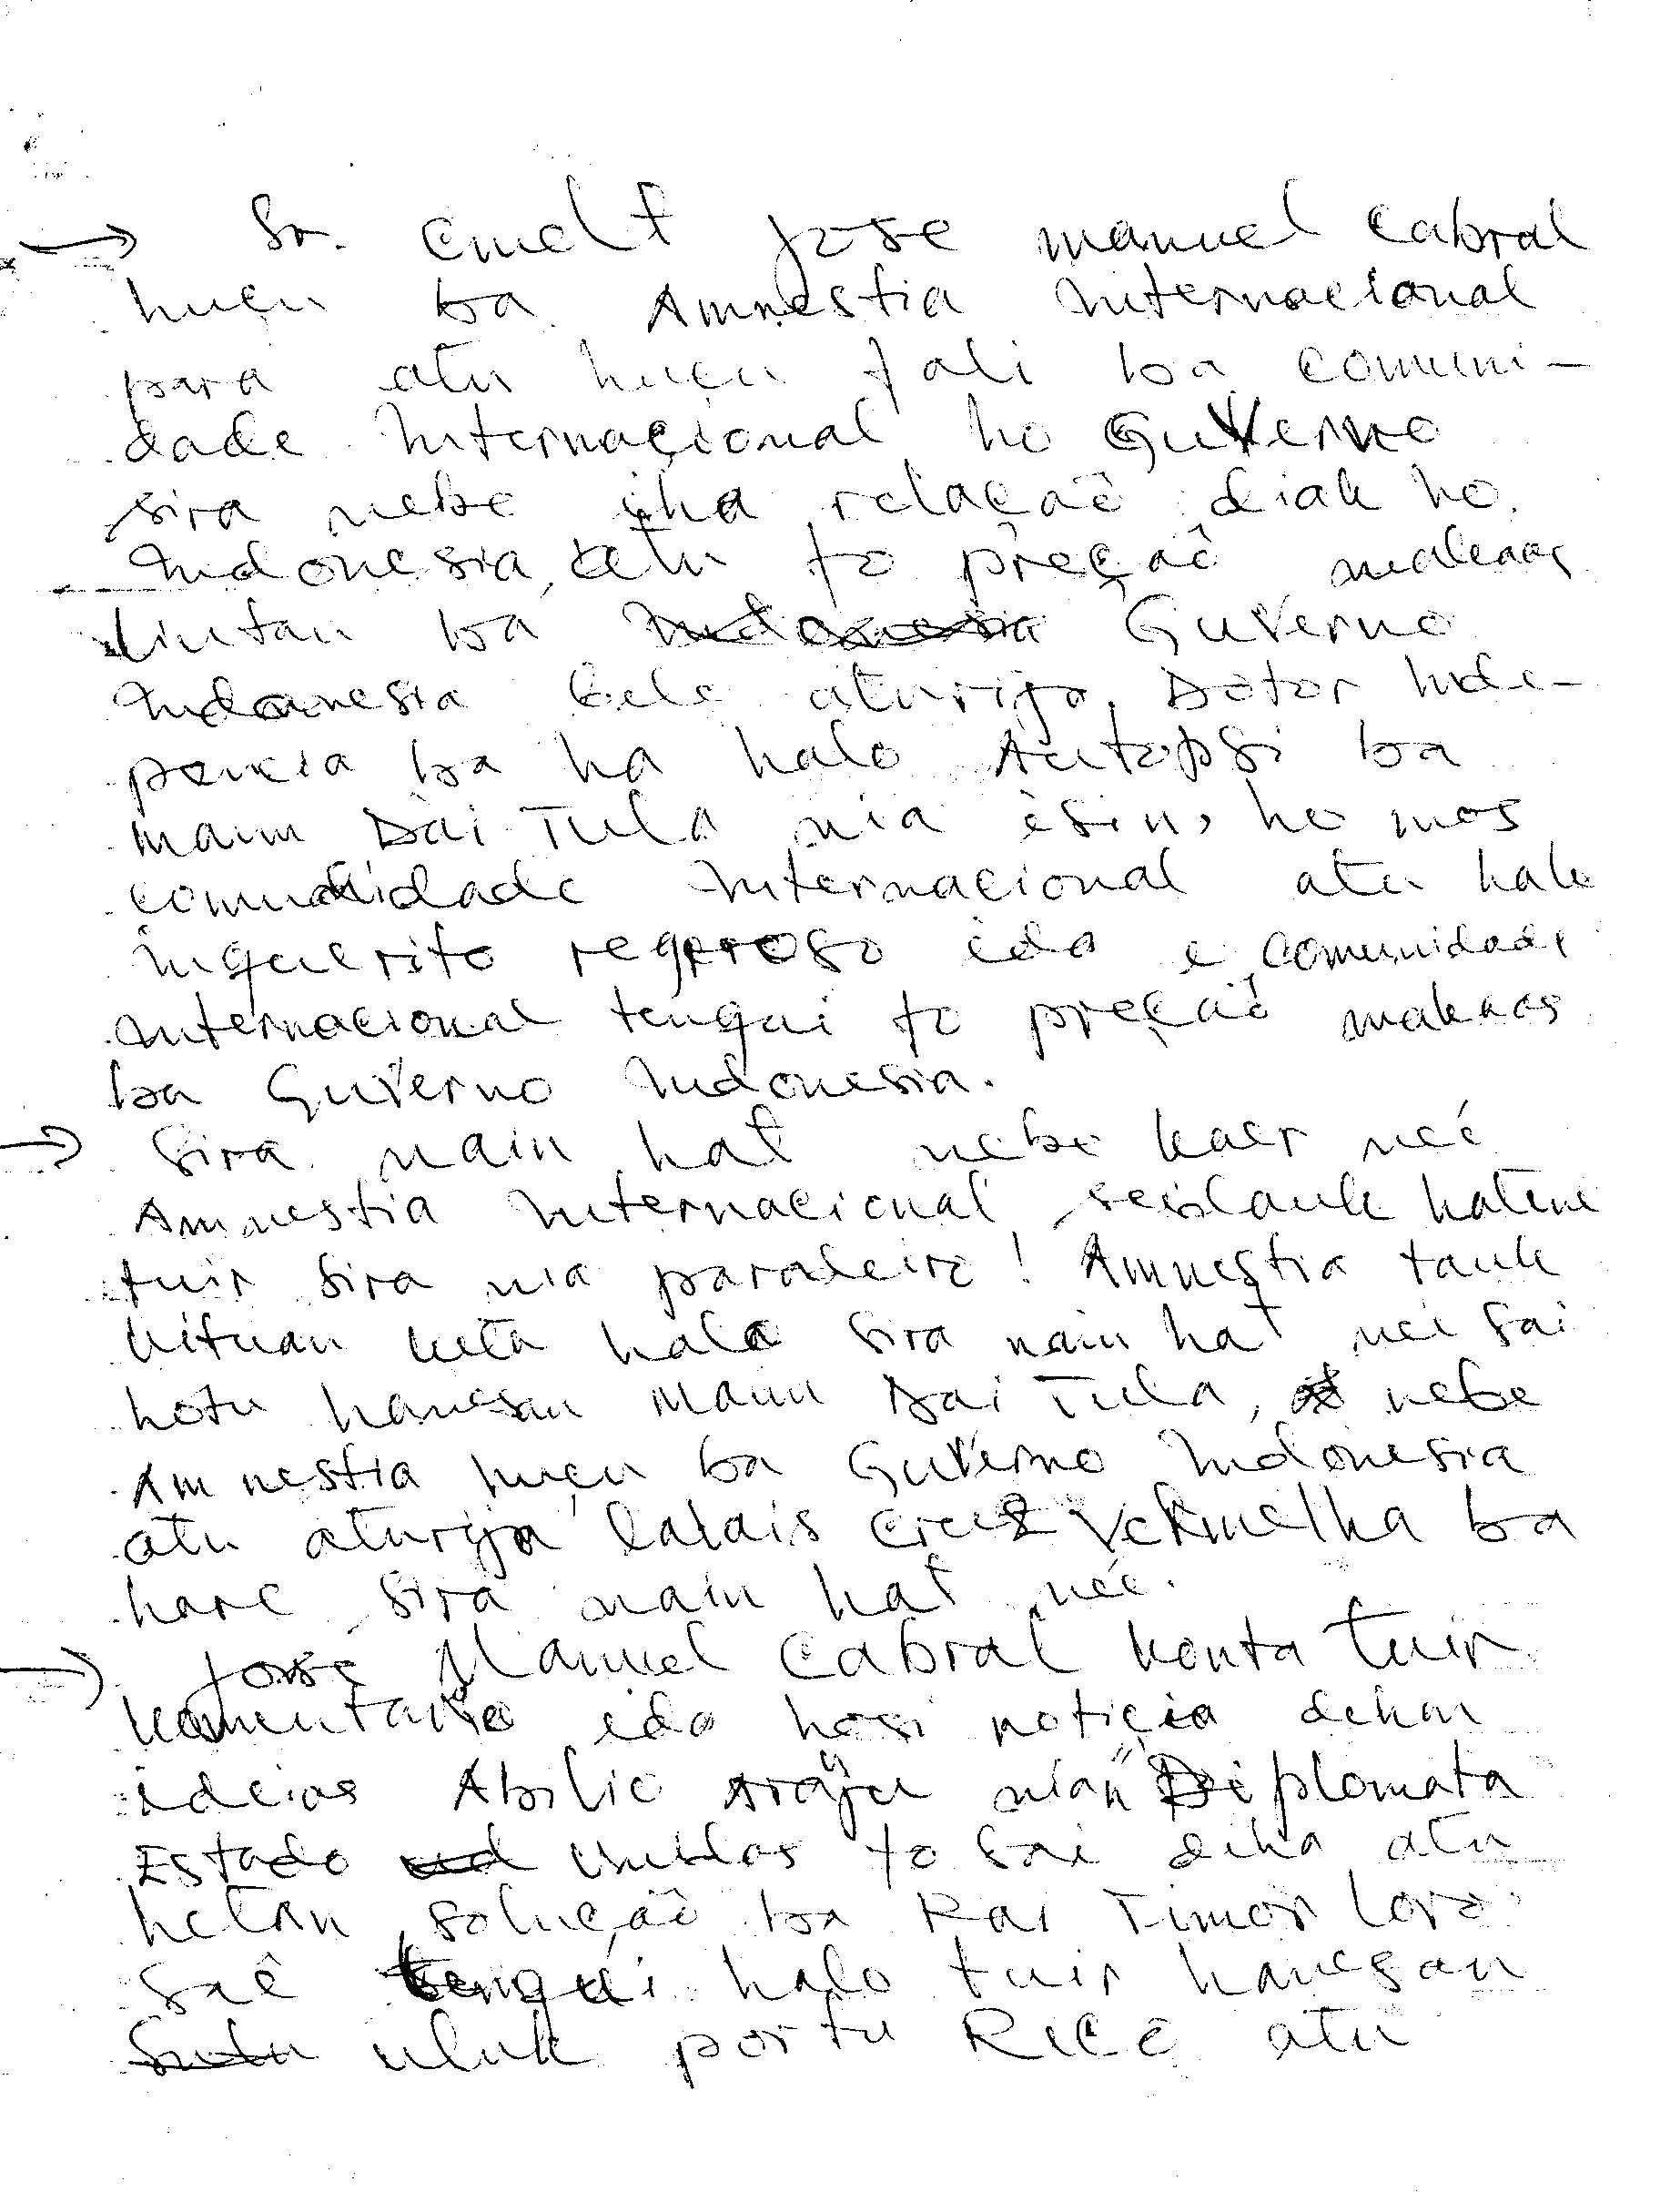 → Sr. Cmdt Jose Manuel Cabral
huçu ba Amnestia Internacional
para atu huçu fali ba comuni-
dade Internaçional ho Guverno
sira nebe iha relaçaõ diak ho
Indonesia, atu fo preçaõ makaas
liutan ba Guverno
Indonesia bele aturiza Dotor Inde-
pencia ba ha halo Autopsi ba
Maun Dai Tula nia èsin, ho mos
comunidade Internacional atu halo
inquerito regoroso ida e comunidade
Internacional tenqui fo preçaõ makaas
ba Guverno Indonesia.
→ Sira nain hat nebe kaer neé
Amnestia Internacional seidauk hatene
tuir sira nia paradeiro! Amnestia tauk
kituan keta halo sira nain hat neé sai
hotu hanesan Maun Dai Tula, nebe
Amnestia huçu ba Guverno Indonesia
atu aturiza lalais Cruz Vermelha ba
hare sira nain hat neé.
→ Jose Manuel Cabral konta tuir
komentario ida hosi notiçia dehan
ideias Abilio Araŭju nian "Diplomata
Estado Unidos fo sai diha atu
hetan soluçaõ ba Rai Timor Loro
Saê tenqui halo tuir hanesan
uluk portu Rico atu